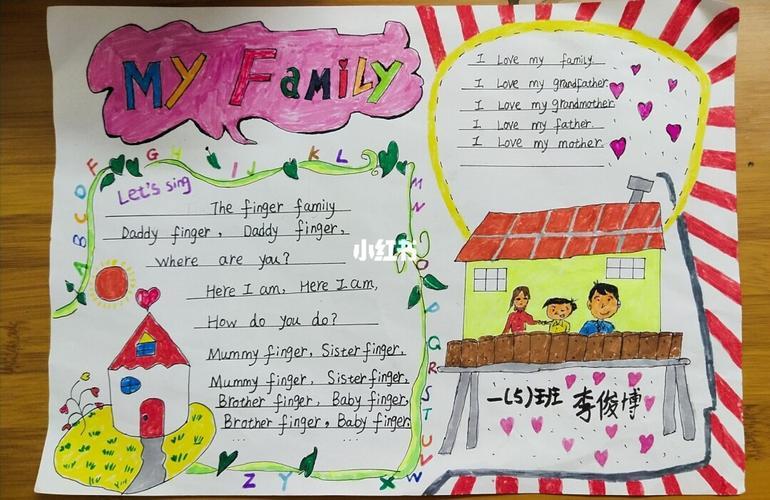 My Family
Let's sing
The finger family
Daddy finger, Daddy finger,
where are you?
Here I am, Here I am,
How do you do?
Mummy finger, Sister finger,
Mummy finger, Sister finger,
Brother finger, Baby finger,
Brother finger, Baby finger.
A B C D F G H I J K L M N O P Q R S T U V W X Y Z
I Love my family
I Love my grandfather
I Love my grandmother
I Love my father
I Love my mother
一(5)班 李俊博
小红书